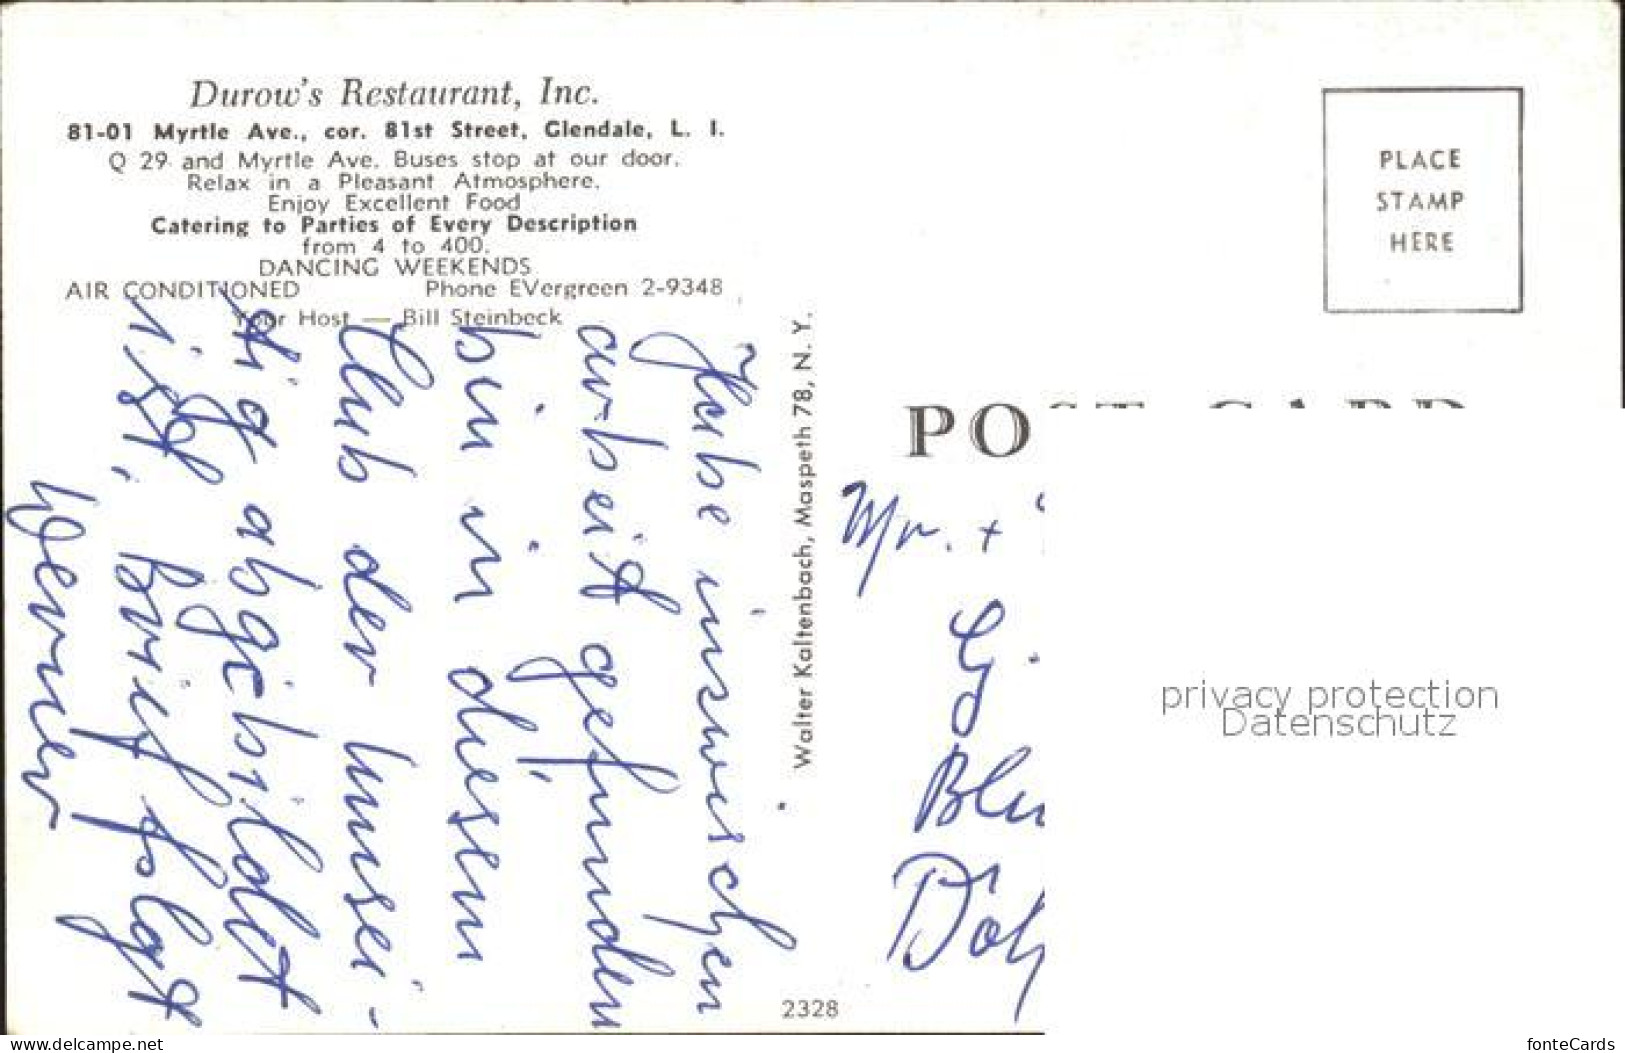 Durow's Restaurant, Inc.
81-01 Myrtle Ave., cor. 81st Street, Glendale, L. I.
Q 29 and Myrtle Ave. Buses stop at our door.
Relax in a Pleasant Atmosphere.
Enjoy Excellent Food
Catering to Parties of Every Description
from 4 to 400.
DANCING WEEKENDS
AIR CONDITIONED Phone EVergreen 2-9348
Your Host — Bill Steinbeck
Habe inzwischen
arbeit gefunden,
bin in diesem
Club der
abgebildet
ist, Brief folgt
Werner
Walter Kaltenbach, Maspeth 78, N. Y.
2328
PLACE
STAMP
HERE
POST CARD
Mr. +
privacy protection
Datenschutz
www.delcampe.net
fonteCards